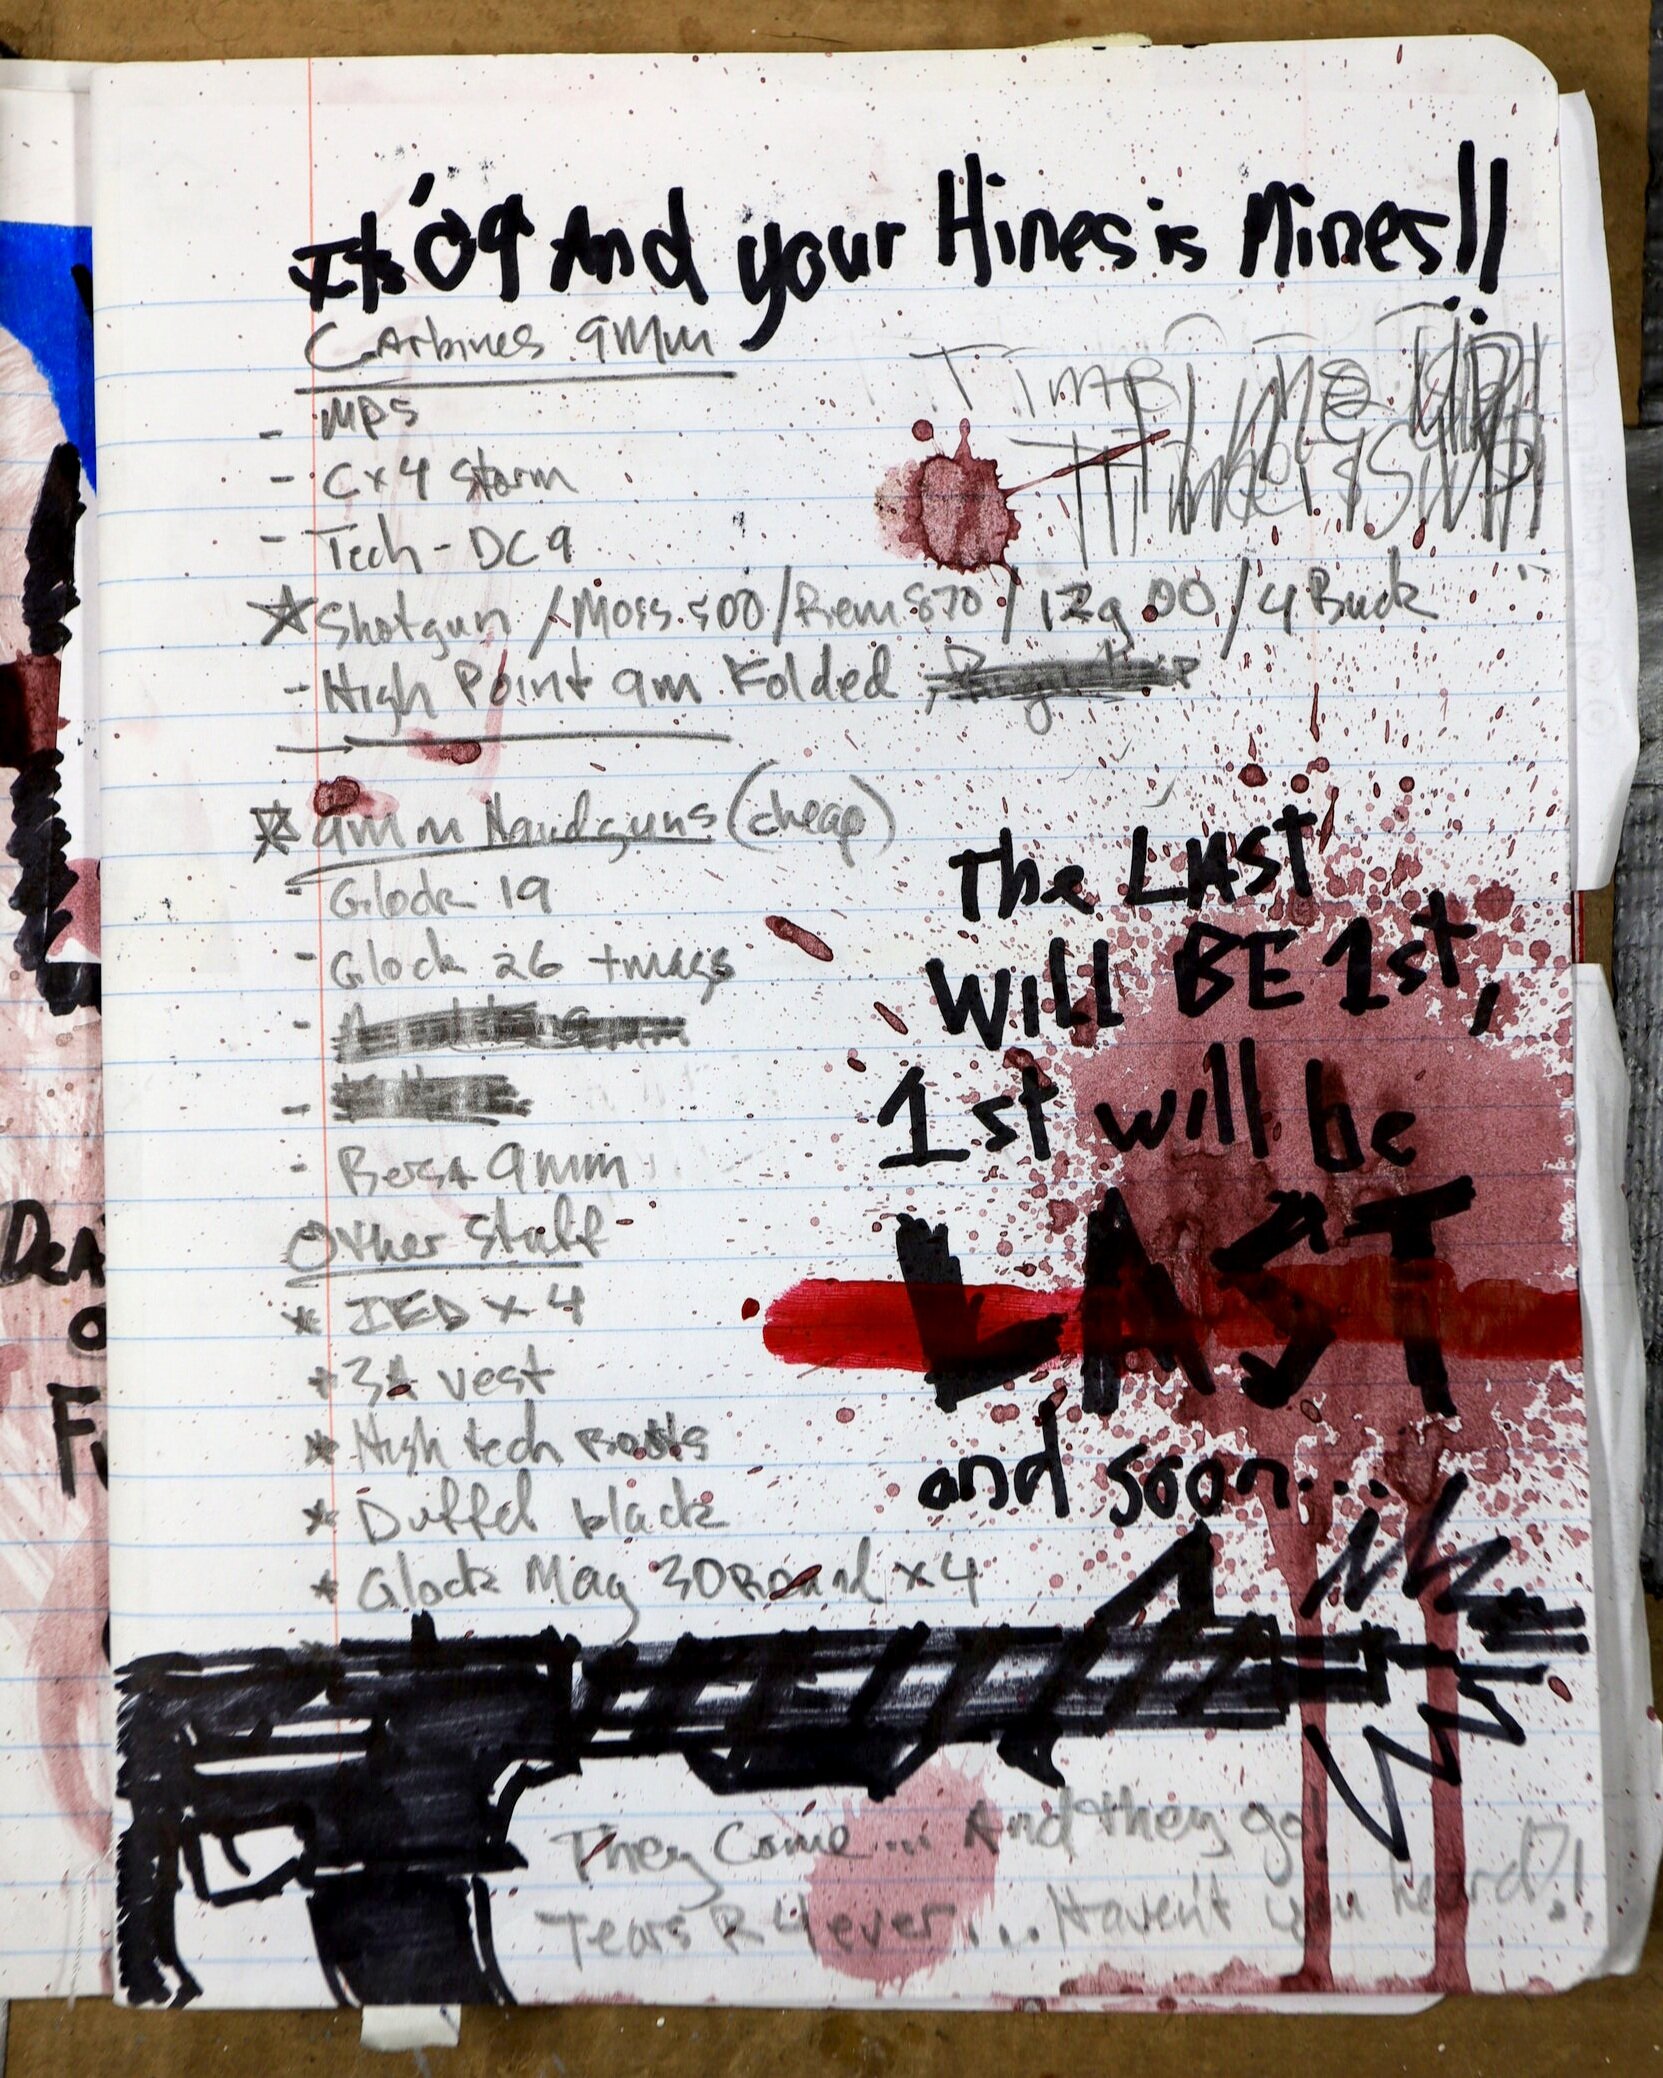 It's '09 And your Hines is Mines!!
Carbines 9Mm
- MP5
- Cx4 Storm
- Tech - DC9
Shotgun / Moss. 500 / Rem 870 / 12g 00 / 4 Buck
- High Point 9m Folded
9mm Handguns (cheap)
- Glock 19
- Glock 26 + mags
- Bersa 9mm
Other Stuff
* IED x 4
* 3A vest
* High tech Boots
* Duffel black
* Glock Mag 30 Round x 4
The LAST
Will BE 1st,
1st will be
LAST
and soon...
They Come... And they go
Tears R 4ever... Haven't you heard?!
DeA
O
F